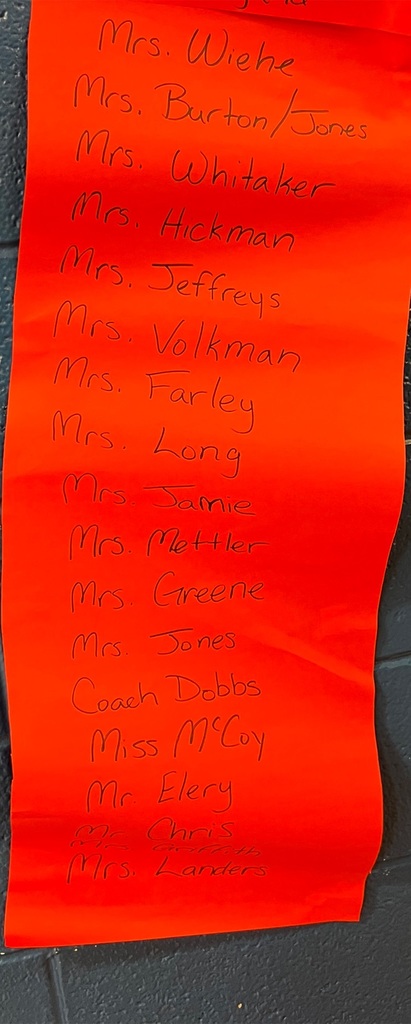 Mrs. Wiehe
Mrs. Burton/Jones
Mrs. Whitaker
Mrs. Hickman
Mrs. Jeffreys
Mrs. Volkman
Mrs. Farley
Mrs. Long
Mrs. Jamie
Mrs. Mettler
Mrs. Greene
Mrs. Jones
Coach Dobbs
Miss McCoy
Mr. Elery
Mr. Chris
Mrs. Griffith
Mrs. Landers